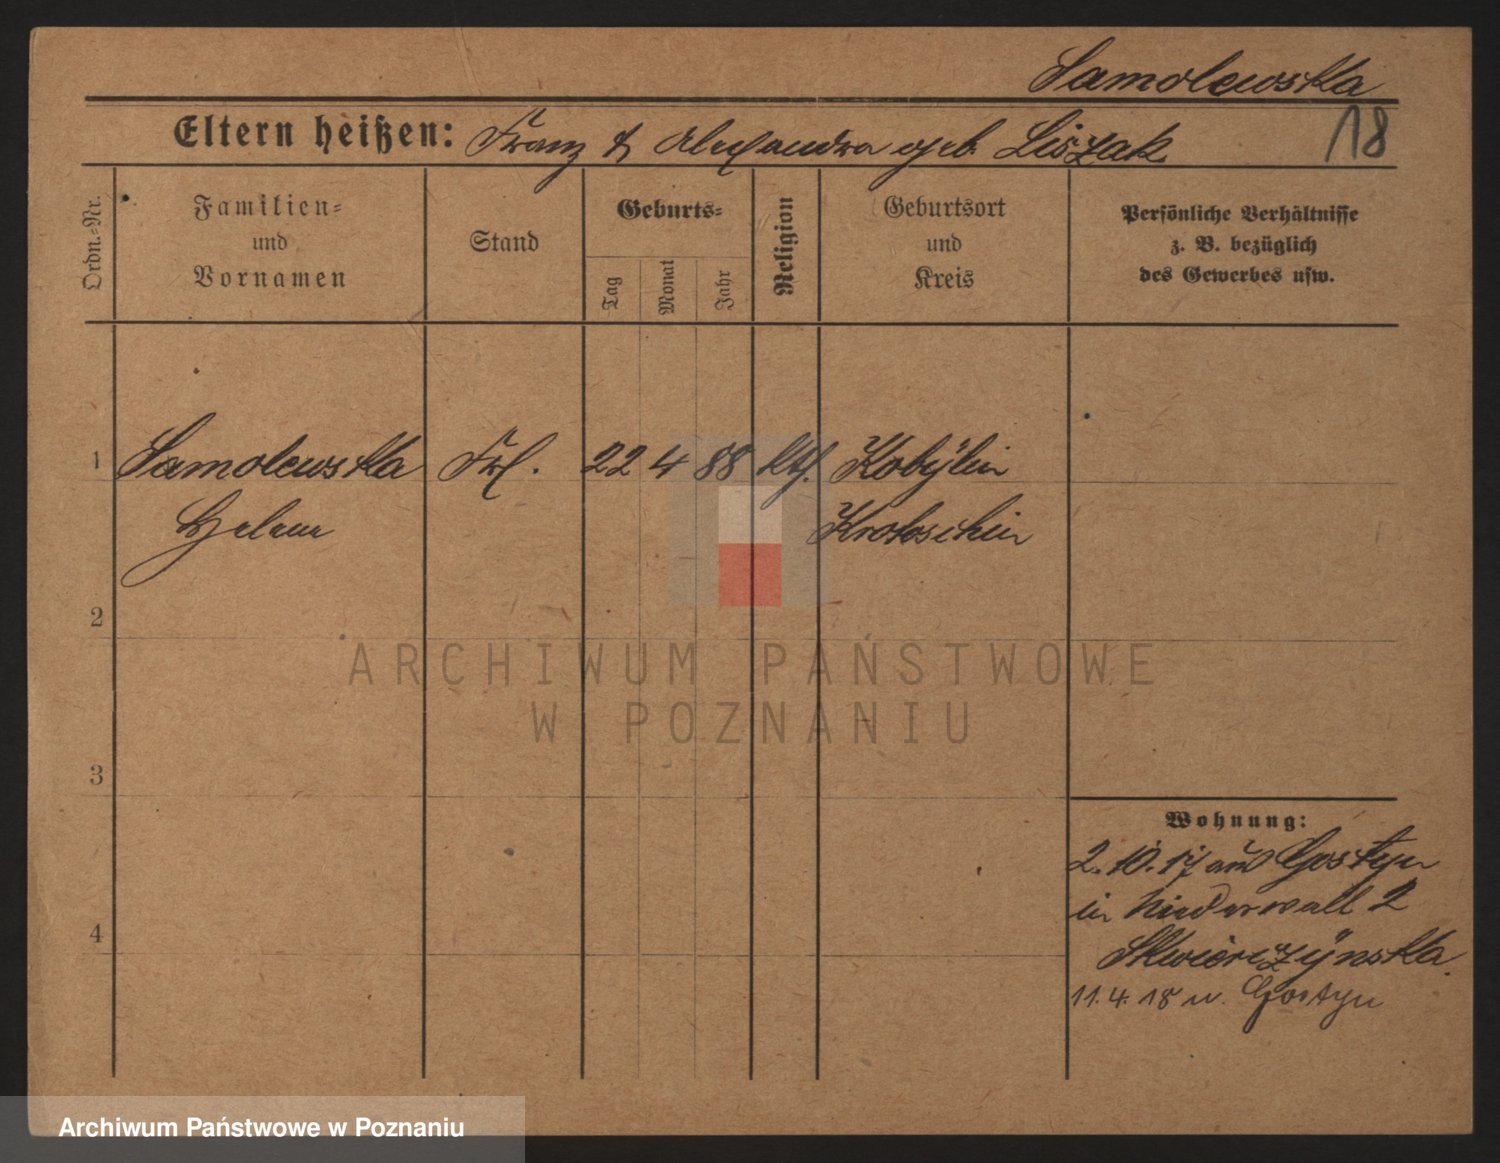 Samolewska
Eltern heißen: Franz & Alexandra geb. Liszak
18
Ordn.-Nr.
Familien-
und
Vornamen
Stand
Geburts-
Tag
Monat
Jahr
Religion
Geburtsort
und
Kreis
Persönliche Verhältnisse
z. B. bezüglich
des Gewerbes usw.
1
Samolewska Frl. 22 4 88 kth. Kobylin
Helene Krotoschin
2
3
4
Wohnung:
2.10.17 aus Gostyn
in Niederwall 2
Skwierczynska
11.4.18 n. Gostyn
ARCHIWUM PAŃSTWOWE
W POZNANIU
Archiwum Państwowe w Poznaniu